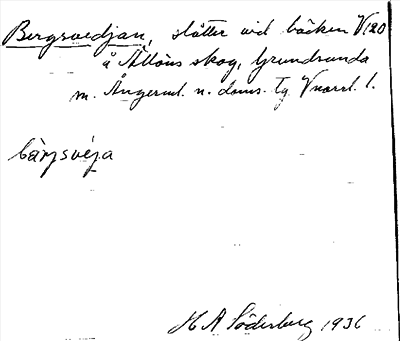 Bergsvedjan, slåtter vid bäcken V120
å Allöns skog, Grundsunda
m. Ångerml. n. doms. Tg Vnorrl. l.
bärjsvéja
H A Söderberg 1936